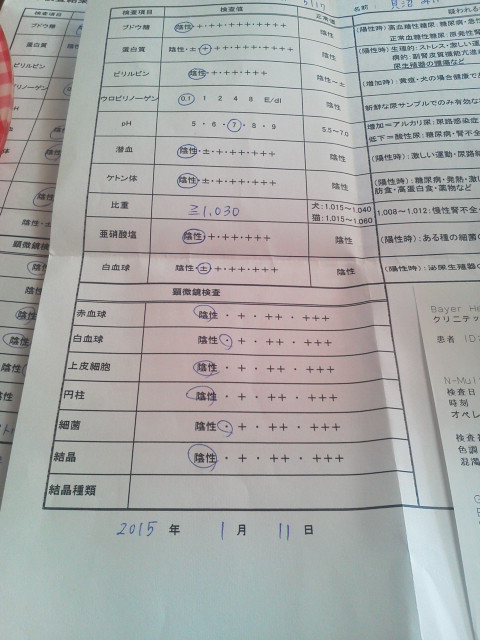 検査項目 検査値 正常値 疑われる
ブドウ糖 陰性・+・++・+++・++++ 陰性 (陽性時)高血糖性糖尿:糖尿病・急性
正常血糖性糖尿:原発性腎
蛋白質 陰性・±・+・++・+++ 陰性～± (陽性時)生理的:ストレス・激しい運動
病的:副腎皮質機能亢進
尿生殖器の腫瘍など
ビリルビン 陰性・+・++・+++ 陰性～± (増加時):黄疸・犬の場合健康でも
ウロビリノーゲン 0.1 1 2 4 8 E/dl 陰性 新鮮な尿サンプルでのみ有効な
pH 5・6・7・8・9 5.5～7.0 増加=アルカリ尿:尿路感染症
低下=酸性尿:糖尿病・腎不全
潜血 陰性・±・+・++・+++ 陰性 (陽性時):激しい運動・尿路結
ケトン体 陰性・±・+・++・+++ 陰性 (陽性時):糖尿病・発熱・激し
肪食・高蛋白食・薬物など
比重 ≧1.030 犬:1.015～1.040
猫:1.015～1.060 1.008～1.012:慢性腎不全・
亜硝酸塩 陰性・+・++・+++ 陰性 (陽性時):ある種の細菌の
白血球 陰性・±・+・++・+++ 陰性 (陽性時):泌尿生殖器の
顕微鏡検査
赤血球 陰性 ・ + ・ ++ ・ +++
白血球 陰性 ・ + ・ ++ ・ +++
上皮細胞 陰性 ・ + ・ ++ ・ +++
円柱 陰性 ・ + ・ ++ ・ +++
細菌 陰性 ・ + ・ ++ ・ +++
結晶 陰性 ・ + ・ ++ ・ +++
結晶種類
2015 年 1 月 11 日
Bayer He
クリニテッ
患者 ID:
N-Mul
検査日
時刻
オペレ
検査
色調
混濁